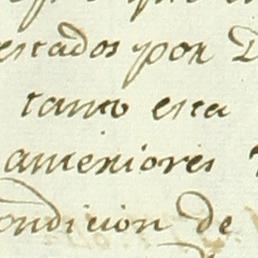 estados por D
tanto esta
anteriores
ondicion de